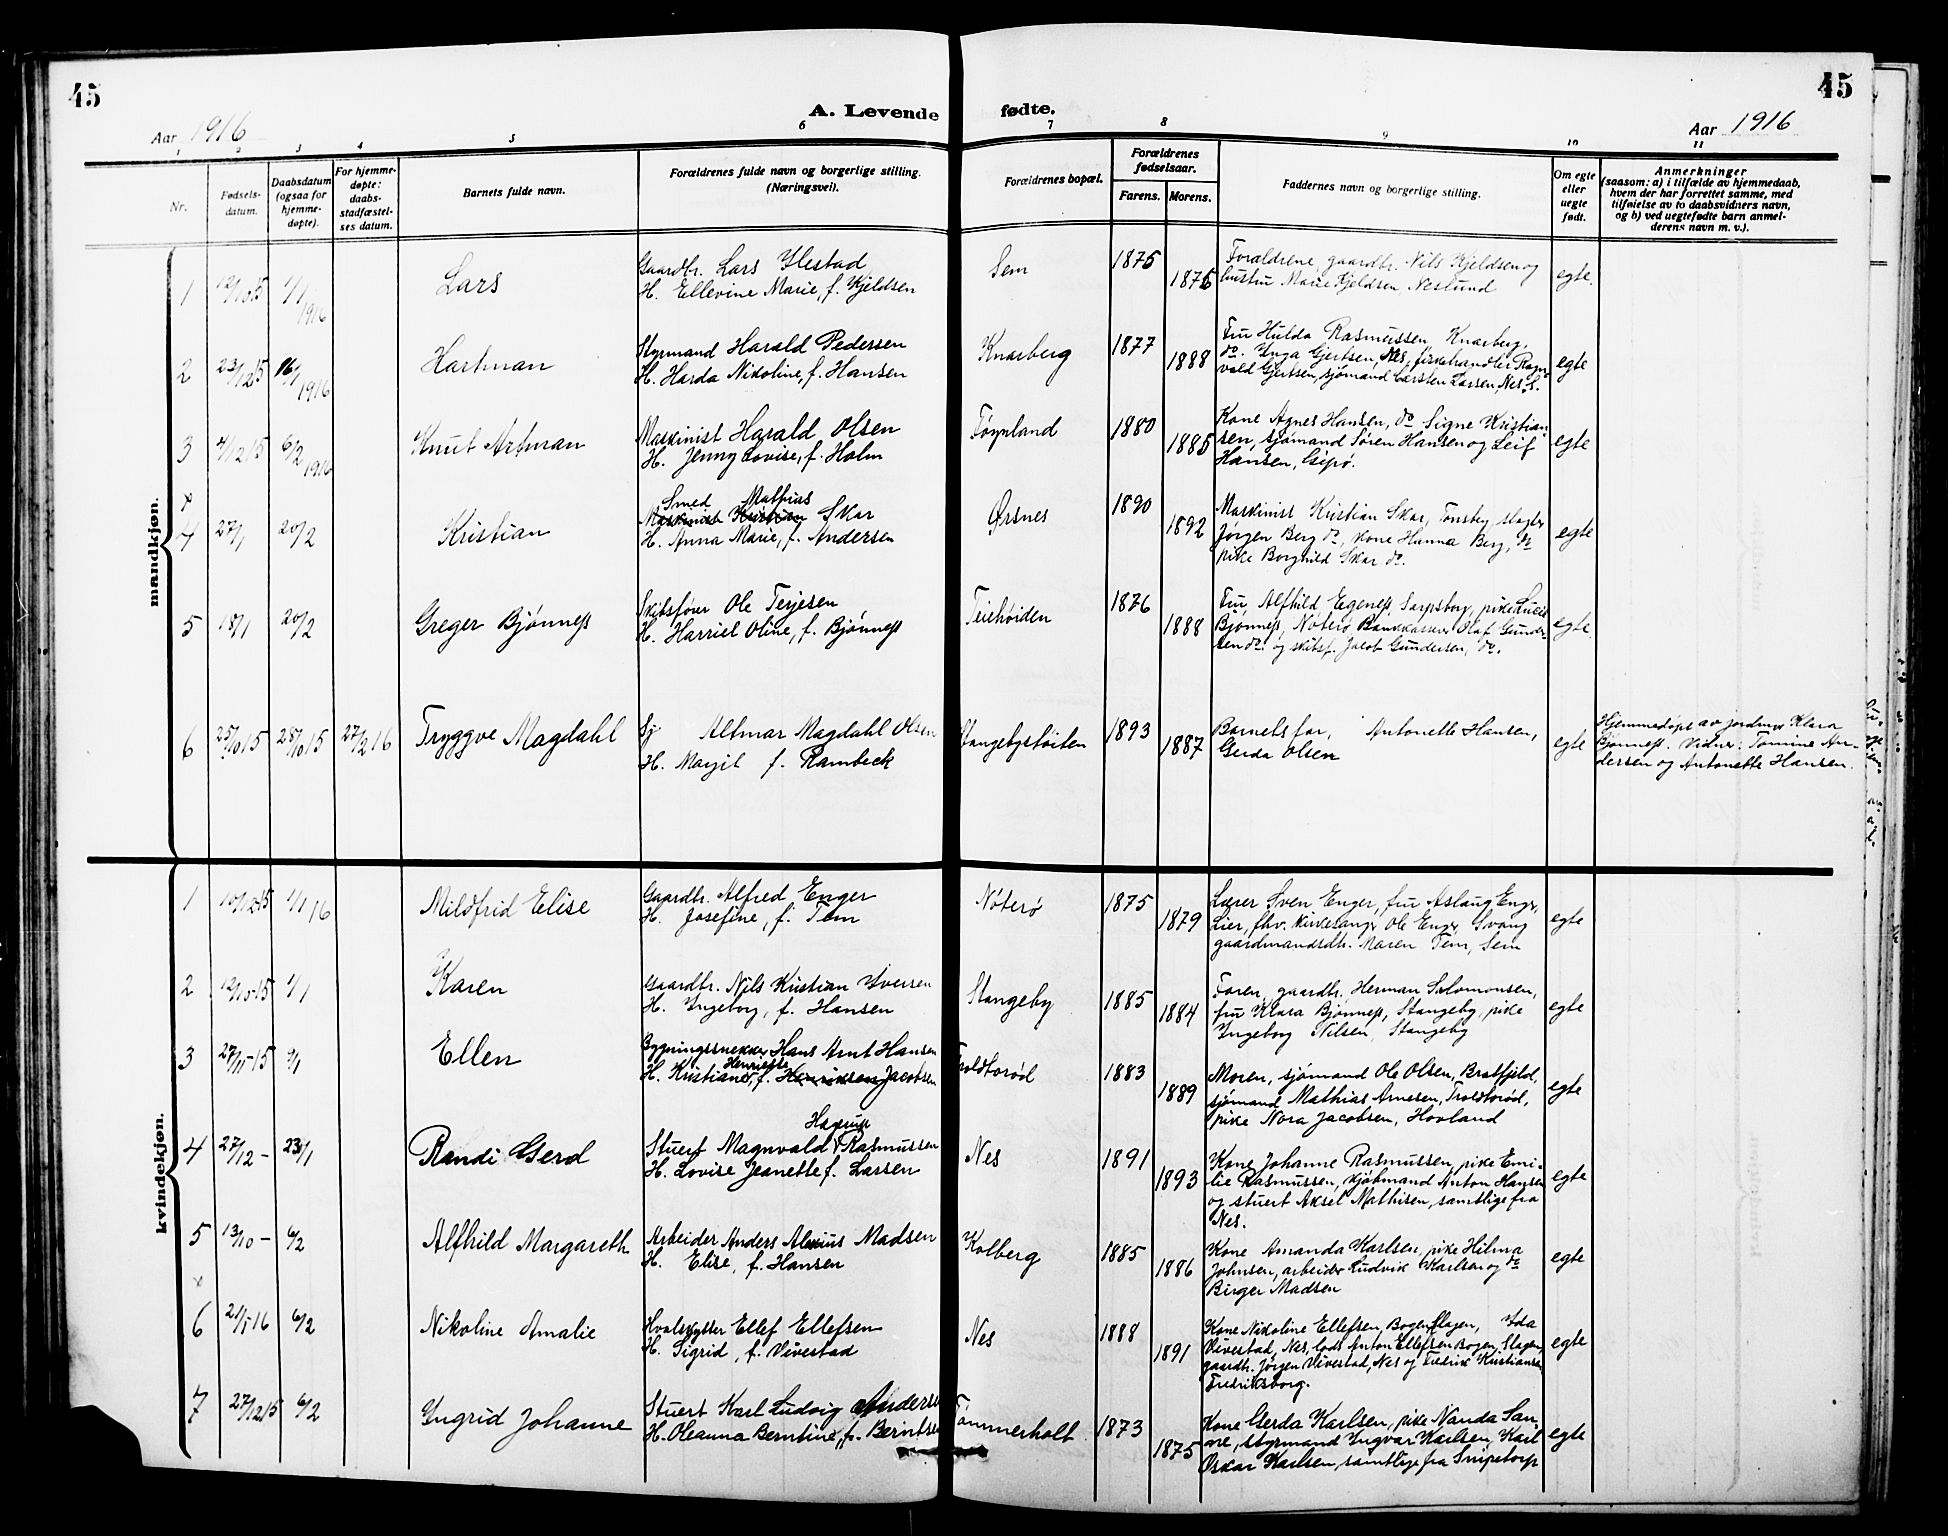 45
45
A. Levende fødte.
Aar 1916
Aar 1916
1 2 3 4 5 6 7 8 9 10 11
Nr.
Fødsels-
datum.
Daabsdatum
(ogsaa for
hjemme-
døpte).
For hjemme-
døpte:
daabs-
stadfæstel-
ses datum.
Barnets fulde navn.
Forældrenes fulde navn og borgerlige stilling.
(Næringsvei).
Forældrenes bopæl.
Forældrenes
fødselsaar.
Farens. Morens.
Faddernes navn og borgerlige stilling.
Om egte
eller
uegte
født.
Anmerkninger
(saasom: a) i tilfælde av hjemmedaab,
hvem der har forrettet samme, med
tilføielse av to daabsvidners navn,
og b) ved uegtefødte barn anmel-
derens navn m. v.).
mandkjøn.
1 12/10 15 1/1 1916 Lars
Gaardbr. Lars Ilestad
H. Ellevine Marie, f. Kjeldsen
Sem 1875 1876
Forældrene, gaardbr. Nils Kjeldsen og
hustru Marie Kjeldsen, Neslund
egte.
2 23/12 15 16/1 1916 Hartman
Styrmand Harald Pedersen
H. Harda Nikoline, f. Hansen
Knarberg 1877 1888
Fru Hulda Rasmussen, Knarberg,
do. Inga Gjertsen, Nes, fiskehandler Ragn-
vald Gjertsen, sjømand Carsten Larsen, Nes.
egte
3 4/12 15 6/2 1916 Knut Artman
Maskinist Harald Olsen
H. Jenny Lovise, f. Holm
Føynland 1880 1885
Kone Agnes Hansen, do Signe Kristian-
sen, sjømand Søren Hansen og Leif
Hansen, Gipø.
egte
x
4 27/1 20/2 Kristian
Smed Mathias
Maskinist Kristian Skar
H. Anna Marie, f. Andersen
Ørsnes 1890 1892
Maskinist Kristian Skar, Tønsberg slagter
Jørgen Berg do, kone Hanna Berg, do
pike Borghild Skar do.
egte
5 18/1 20/2 Greger Bjønness
Skibsfører Ole Terjesen
H. Harriet Oline, f. Bjønness
Teiehøiden 1876 1888
Fru Alfhild Egeness, Sarpsborg, pike Lucie
Bjønness, Nøterø Bankkasserer Olaf Gunder-
sen do. og skibsf. Jacob Gundersen, do.
egte.
6 25/10 15 28/10 15 27/2 16 Tryggve Magdahl
Sj Altmar Magdahl Olsen
H. Margit f. Rambeck
Stangebytoiten 1893 1887
Barnets far, Antonette Hansen,
Gerda Olsen
egte
Hjemmedøpt av jordmor Klara
Bjønness. Vidner: Tomine An-
dersen og Antonette Hansen.
kvindekjøn.
1 10/12 15 1/1 16 Mildfrid Elise
Gaardbr. Alfred Enger
H. Josefine, f. Tem
Nøterø 1875 1879
Lærer Sven Enger, fru Aslaug Enger,
Lier, fhv. kirkesanger Ole Enger, Svang
gaardmandsdtr. Maren Tem, Sem
egte
2 12/10-15 1/1 Karen
Gaardbr. Nils Kristian Iversen
H. Ingeborg, f. Hansen
Stangeby 1885 1884
Faren, gaardbr. Herman Salomonsen,
fru Klara Bjønness, Stangeby, pike
Ingeborg Nilsen, Stangeby
egte
3 27/11-15 9/1 Ellen
Bygningssnekker Hans Arnt Hansen
Henriette
H. Kristiane, f. Henriksen Jacobsen
Troldborød 1883 1889
Moren, sjømand Ole Olsen, Bratfjeld,
sjømand Mathias Arnesen, Troldborød,
pike Nora Jacobsen, Hovland
egte
4 27/12 - 23/1 Randi Gerd
Hagerup
Stuert Magnvald Rasmussen
H. Lovise Jeanette f. Larsen
Nes 1891 1893
Kone Johanne Rasmussen, pike Emi-
lie Rasmussen, kjøbmand Anton Hansen
og stuert Aksel Mathisen, samtlige fra
Nes.
egte
5 13/10 - 6/2 Alfhild Margareth
Arbeider Anders Alexius Madsen
H. Elise, f. Hansen
Kolberg 1885 1886
Kone Amanda Karlsen, pike Hilma
Johnsen, arbeider Ludvik Karlsen og do
Birger Madsen
egte
x
6 21/1-16 6/2 Nikoline Amalie
Hvalskytter Ellef Ellefsen
H. Sigrid, f. Vivestad
Nes 1888 1891
Kone Nikoline Ellefsen, Bogen, Slagen, Ida
Vivestad, Nes, lods Anton Ellefsen Bogen, Slagen
gaardb. Jørgen Vivestad, Nes og Fredrik Kristiansen
Fredriksborg.
egte
7 27/12 15 6/2 Ingrid Johanne
Stuert Karl Ludvig Anderse
H. Oleanna Berntine, f. Berntsen
Tømmerholt 1873 1875
Kone Gerda Karlsen, pike Nanda San-
ne, styrmand Ingvar Karlsen, Karl
Oskar Karlsen, samtlige fra Snipetorp
egte